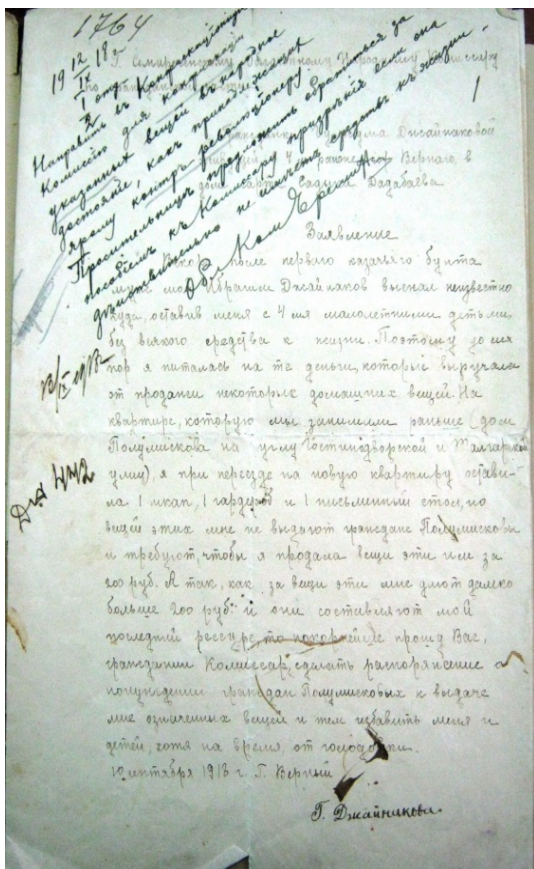 1764
19 12/IX 18 г.
1 отд.
Направить въ Конфискаціонную
Комиссію для конфискаціи
указанныхъ вещей въ народное
достояніе, какъ принадлежащихъ
ярому контръ-революціонеру.
Просительницѣ предложить обратиться за
пособіемъ къ Комиссару призрѣнія если она
дѣйствительно не имѣетъ средствъ къ жизни.
Обл. Ком.
1
Г. Семиреченскому Областному Народному Комиссару
Джайнаковой
4 Верного, в
доме Садыка Дадабаева
Заявление
Вскоре после первого казачьего бунта
муж мой Ибрагим Джайнаков выехал неизвестно
куда, оставив меня с 4 мя малолетними детьми,
без всякого средства к жизни. Поэтому до сих
пор я питалась на те деньги, которые выручала
от продажи некоторых домашних вещей. На
квартире, которую мы занимали раньше (дом
Полумискова на углу Гостинодворской и Талгарской
улиц), я при переезде на новую квартиру остави-
ла 1 шкап, 1 гардероб и 1 письменный стол, но
вещей этих мне не выдают граждане Полумисковы
и требуют, чтобы я продала вещи эти им за
200 руб. А так, как за вещи эти мне дают далеко
больше 200 руб. и они составляют мой
последний рессурс, то покорнейше прошу Вас,
гражданин Комиссар, сделать распоряжение о
понуждении граждан Полумисковых к выдаче
мне означенных вещей и тем избавить меня и
детей, хотя на время, от голодовки.
10 сентября 1918 г. Г. Верный
Г. Джайнакова